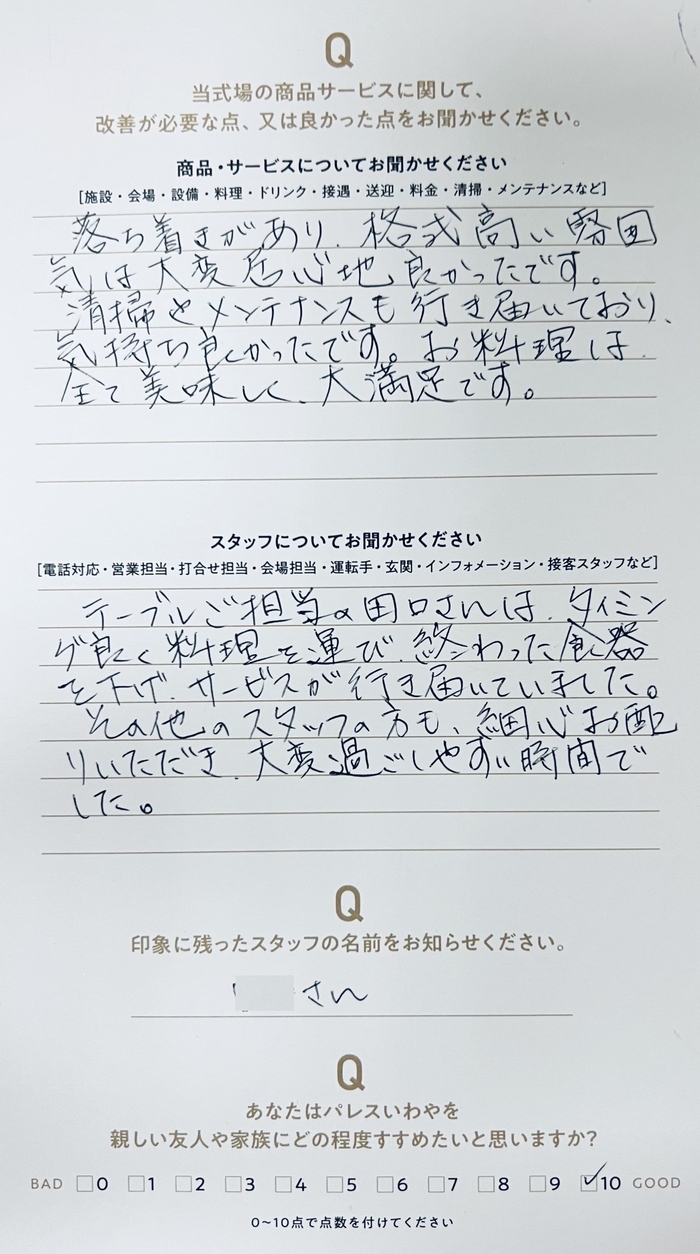 Q
当式場の商品サービスに関して、
改善が必要な点、又は良かった点をお聞かせください。
商品・サービスについてお聞かせください
[施設・会場・設備・料理・ドリンク・接遇・送迎・料金・清掃・メンテナンスなど]
落ち着きがあり、格式高い雰囲
気は大変居心地良かったです。
清掃やメンテナンスも行き届いており、
気持ち良かったです。お料理は
全て美味しく、大満足です。
スタッフについてお聞かせください
[電話対応・営業担当・打合せ担当・会場担当・運転手・玄関・インフォメーション・接客スタッフなど]
テーブルご担当の田口さんは、タイミン
グ良く料理を運び、終わった食器
を下げ、サービスが行き届いていました。
その他のスタッフの方も、細心お配
りいただき、大変過ごしやすい時間で
した。
Q
印象に残ったスタッフの名前をお知らせください。
さん
Q
あなたはパレスいわやを
親しい友人や家族にどの程度すすめたいと思いますか?
BAD 0 1 2 3 4 5 6 7 8 9 10 GOOD
0~10点で点数を付けてください